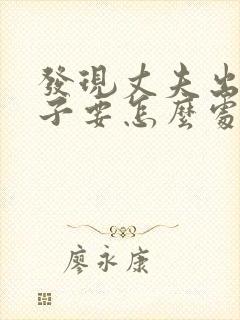 發現丈夫出
子要怎麼處
廖永康